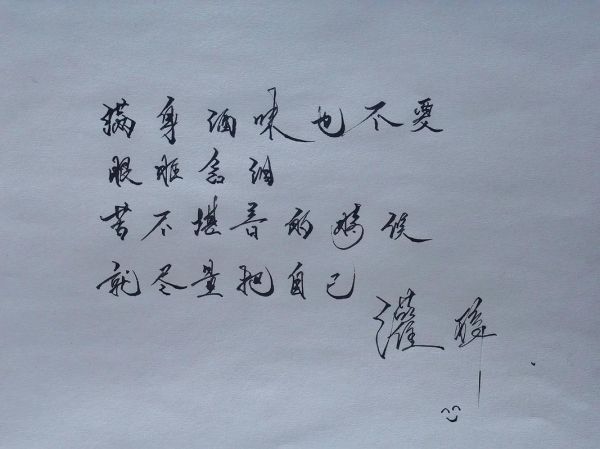 满身酒味也不爱
眼眶含泪
苦不堪言的时候
就尽量把自己
灌醉